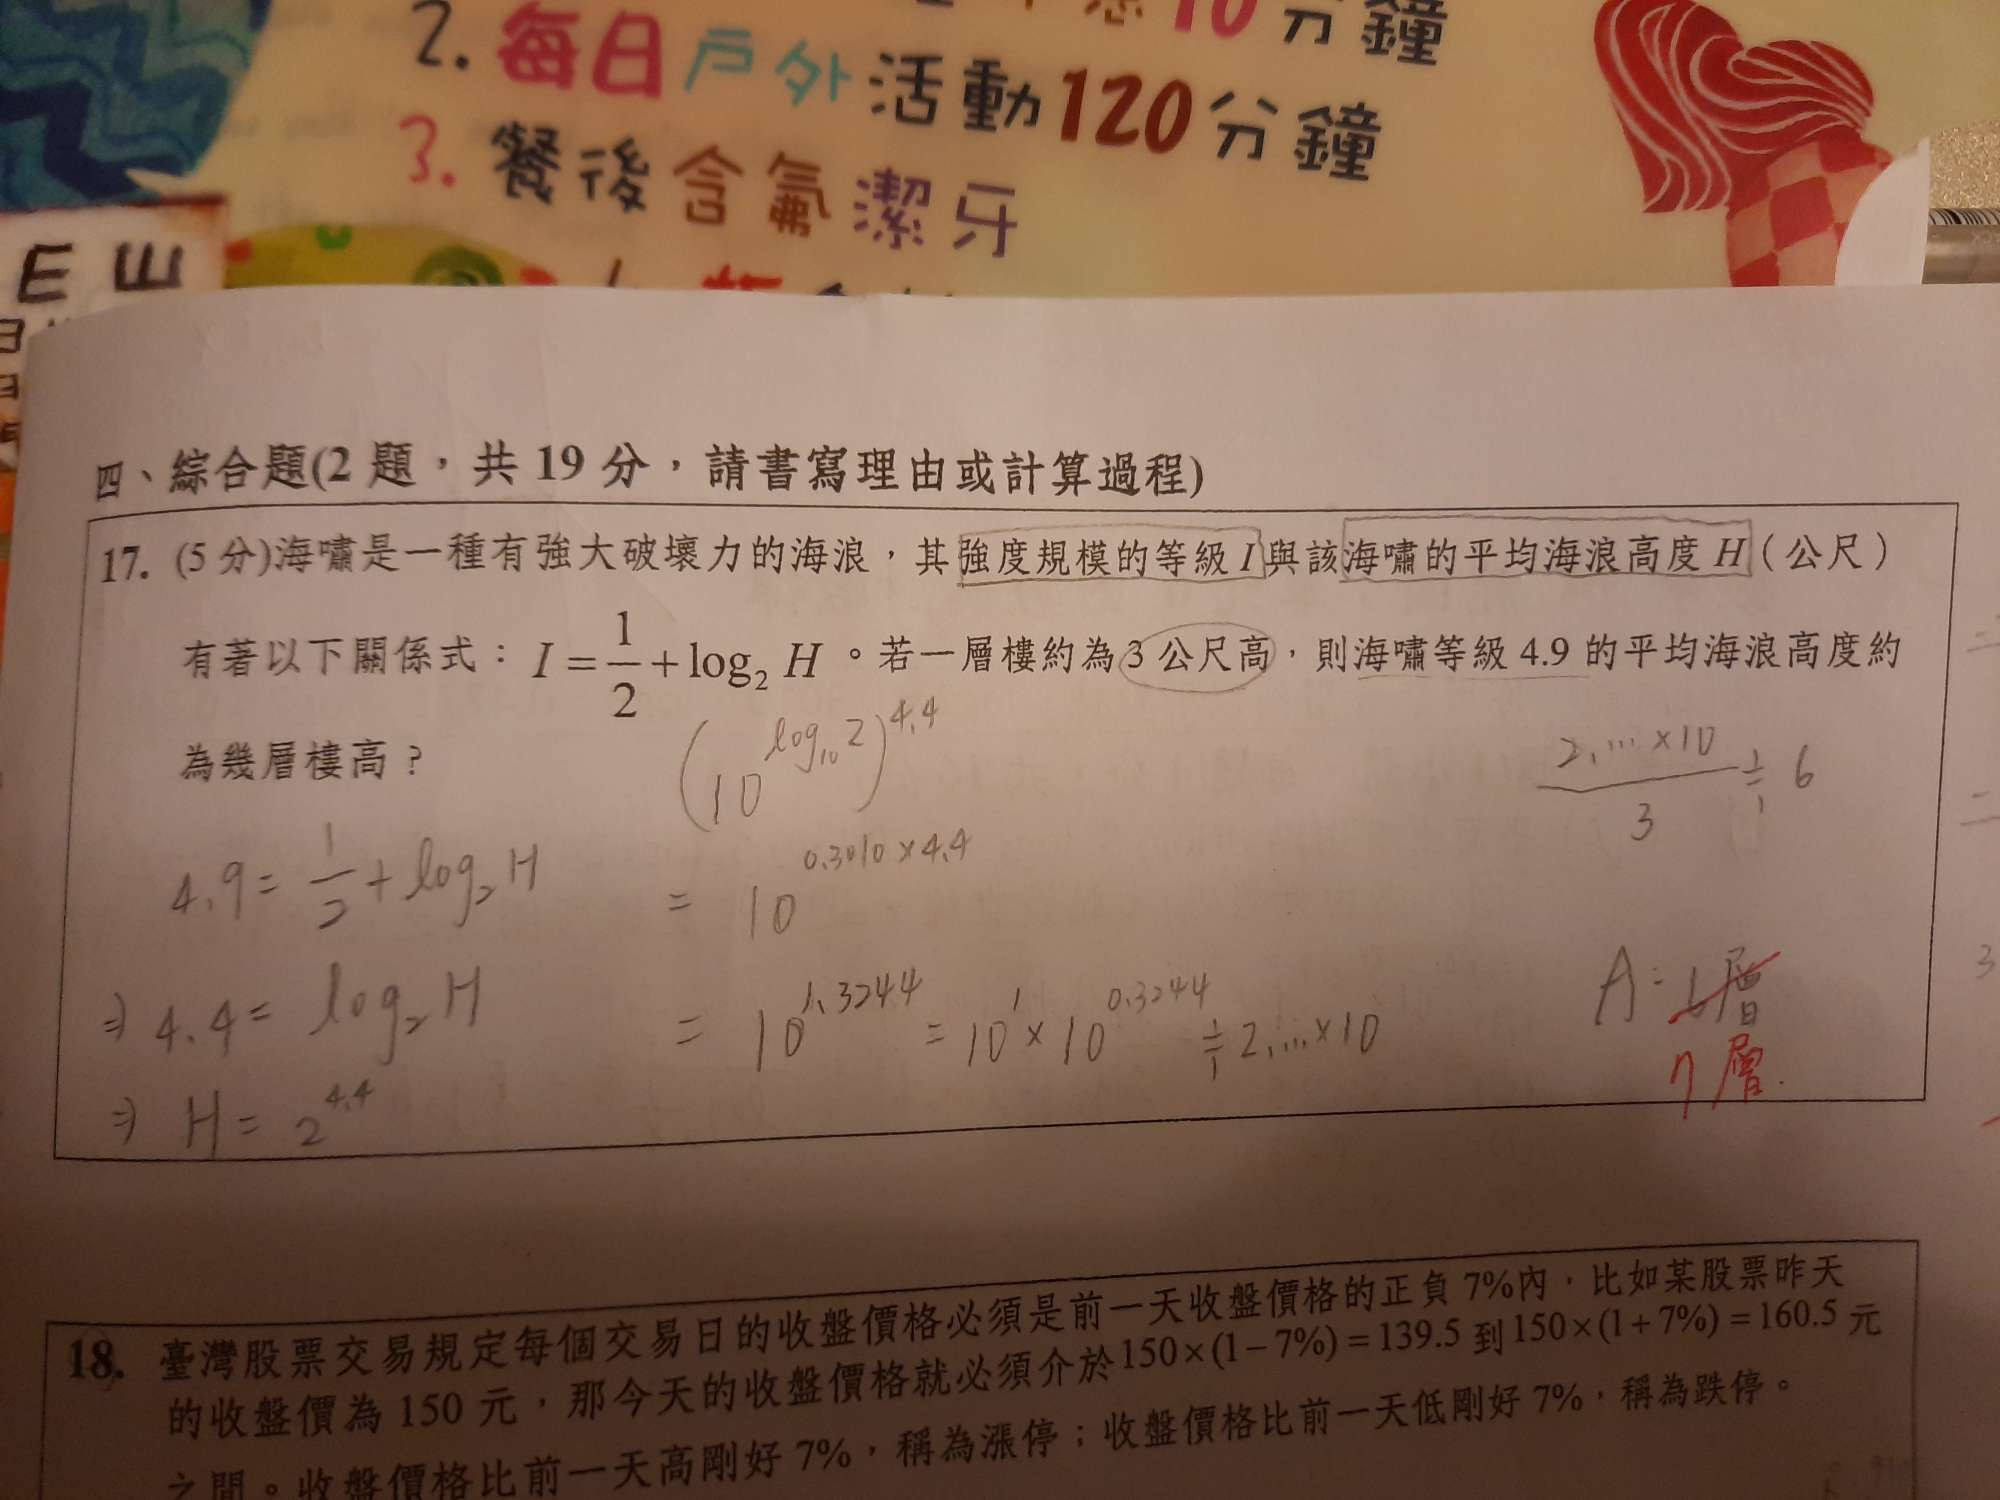 10分鐘
2. 每日戶外活動120分鐘
3. 餐後含氟潔牙
E
四、綜合題(2 題，共 19 分，請書寫理由或計算過程)
17. (5 分)海嘯是一種有強大破壞力的海浪，其強度規模的等級 I 與該海嘯的平均海浪高度 H（公尺）
有著以下關係式：I = 1/2 + log₂ H 。若一層樓約為 3 公尺高，則海嘯等級 4.9 的平均海浪高度約
為幾層樓高？
4.9 = 1/2 + log₂H
⇒ 4.4 = log₂H
⇒ H = 2^4.4
(10^log₁₀2)^4.4
= 10^0.3010×4.4
= 10^1.3244 = 10^1 × 10^0.3244 ≑ 2.... ×10
2.... ×10 / 3 ≑ 6
A: 6層
7層.
18. 臺灣股票交易規定每個交易日的收盤價格必須是前一天收盤價格的正負 7%內，比如某股票昨天
的收盤價為 150 元，那今天的收盤價格就必須介於150×(1−7%) = 139.5 到150×(1+7%) = 160.5 元
之間。收盤價格比前一天高剛好 7%，稱為漲停；收盤價格比前一天低剛好 7%，稱為跌停。